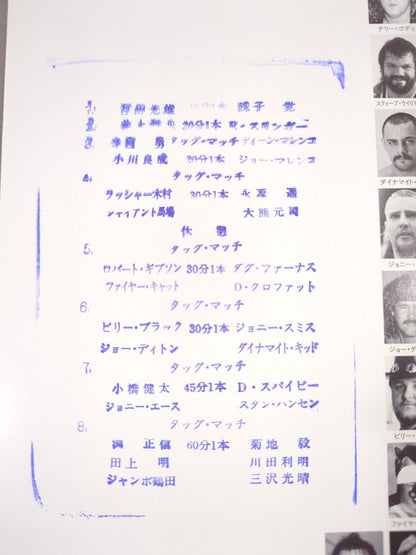 1.
百田光雄 1本 獅子 覚
2. 井上 20分1本 R・スリンガー
3. 寺西 勇 タッグ・マッチ ディーン・マレンコ
小川良成 30分1本 ジョー・マレンコ
4. タッグ・マッチ
ラッシャー木村 30分1本 永源 遙
ジャイアント馬場 大熊元司
休憩
5. タッグ・マッチ
ロバート・ギブソン 30分1本 ダグ・ファーナス
ファイヤー・キャット D・クロファット
6. タッグ・マッチ
ビリー・ブラック 30分1本 ジョニー・スミス
ジョー・ディトン ダイナマイト・キッド
7. タッグ・マッチ
小橋健太 45分1本 D・スパイビー
ジョニー・エース スタン・ハンセン
8. タッグ・マッチ
渕 正信 60分1本 菊地 毅
田上 明 川田利明
ジャンボ鶴田 三沢光晴
テリー・ゴディ
スティーブ・ウイリ
ダイナマイト・
ジョニー・
ジョー・デ
ビリー・
ファイヤ